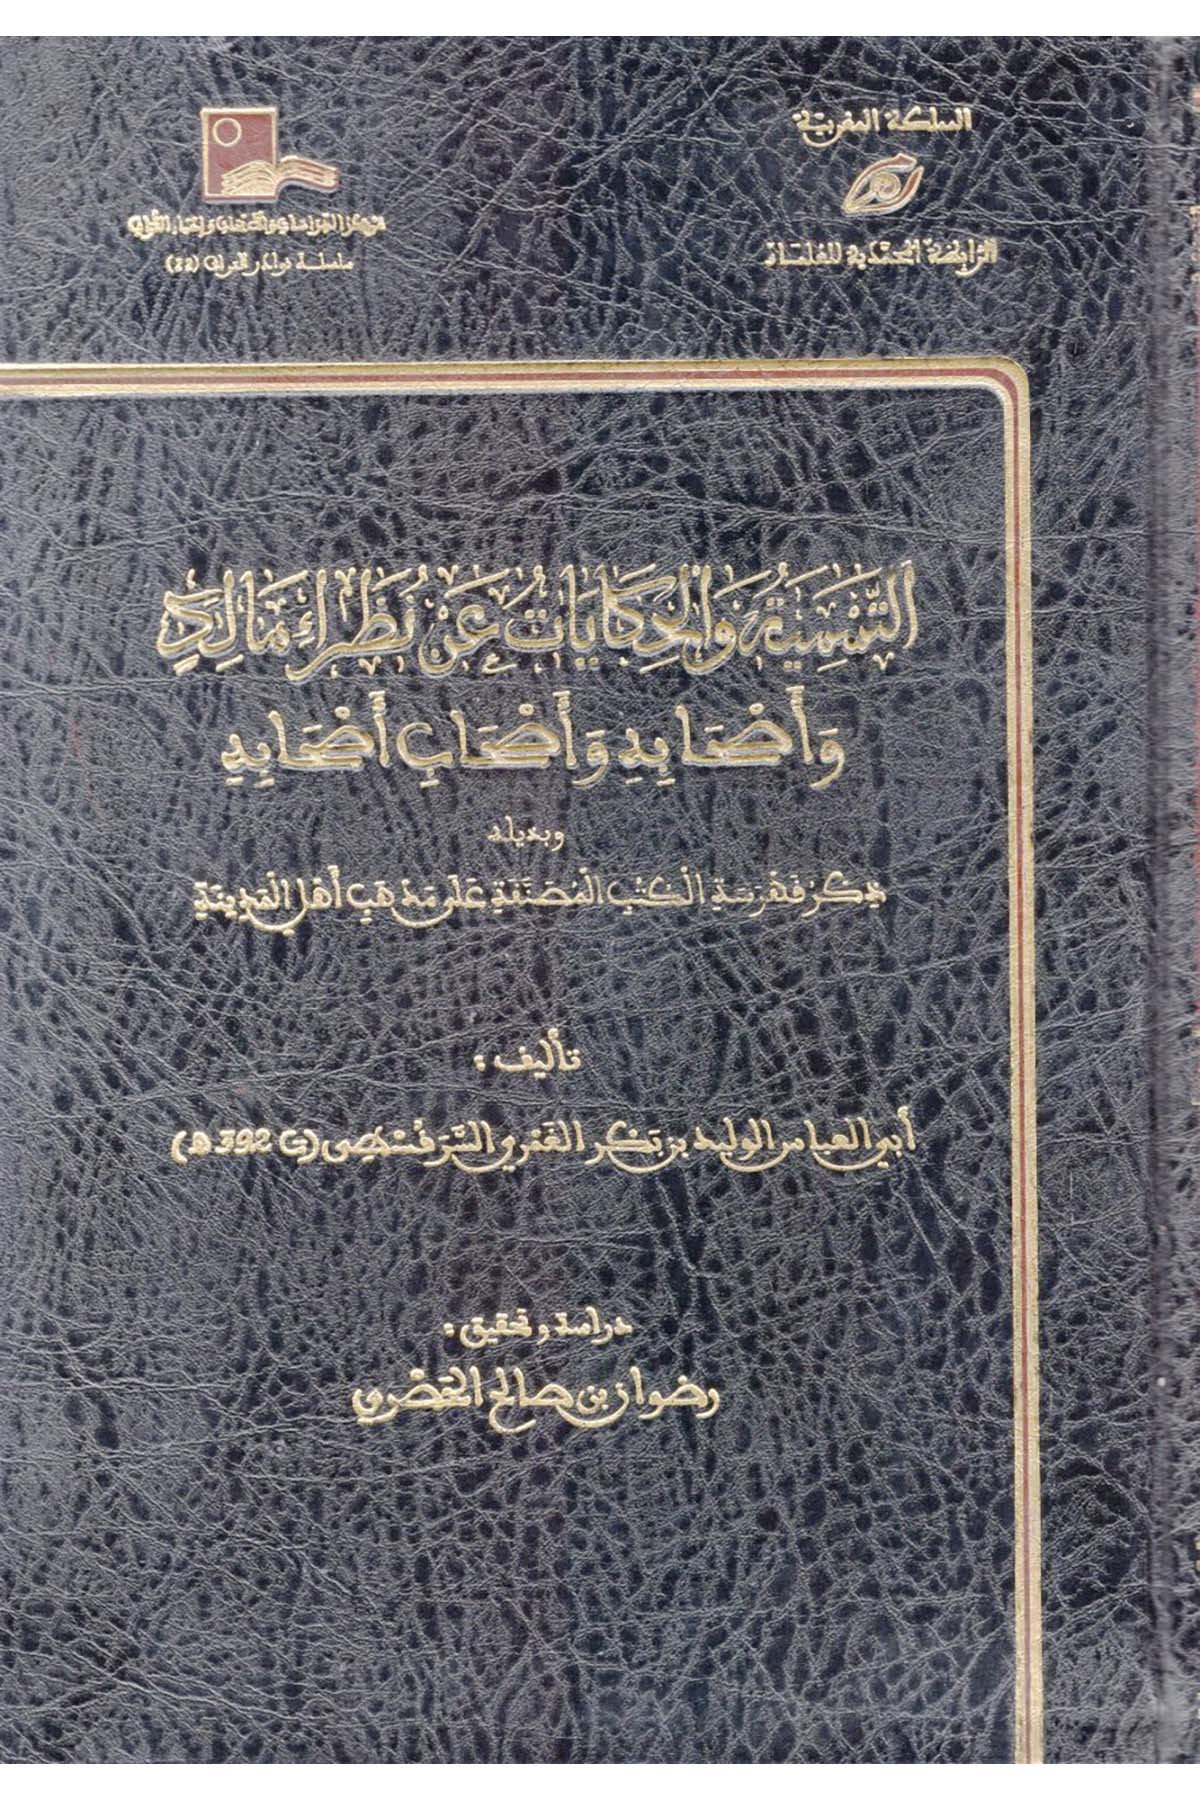 المملكة المغربية
الرابطة المحمدية للعلماء
مركز الدراسات والأبحاث وإحياء التراث
سلسلة نوادر التراث (22)
التَّسْمِيَةُ وَالْحِكَايَاتُ عَنْ نُظَرَاءِ مَالِكٍ
وَأَصْحَابِهِ وَأَصْحَابِ أَصْحَابِهِ
وبذيله
ذِكْرُ فَهْرَسَةِ الْكُتُبِ الْمُصَنَّفَةِ عَلَى مَذْهَبِ أَهْلِ الْمَدِينَةِ
تأليف:
أبي العباس الوليد بن بَكْر الغَمْري السَّرَقُسْطِي (ت 392 هـ)
دراسة وتحقيق:
رضوان بن صالح الحَصْري